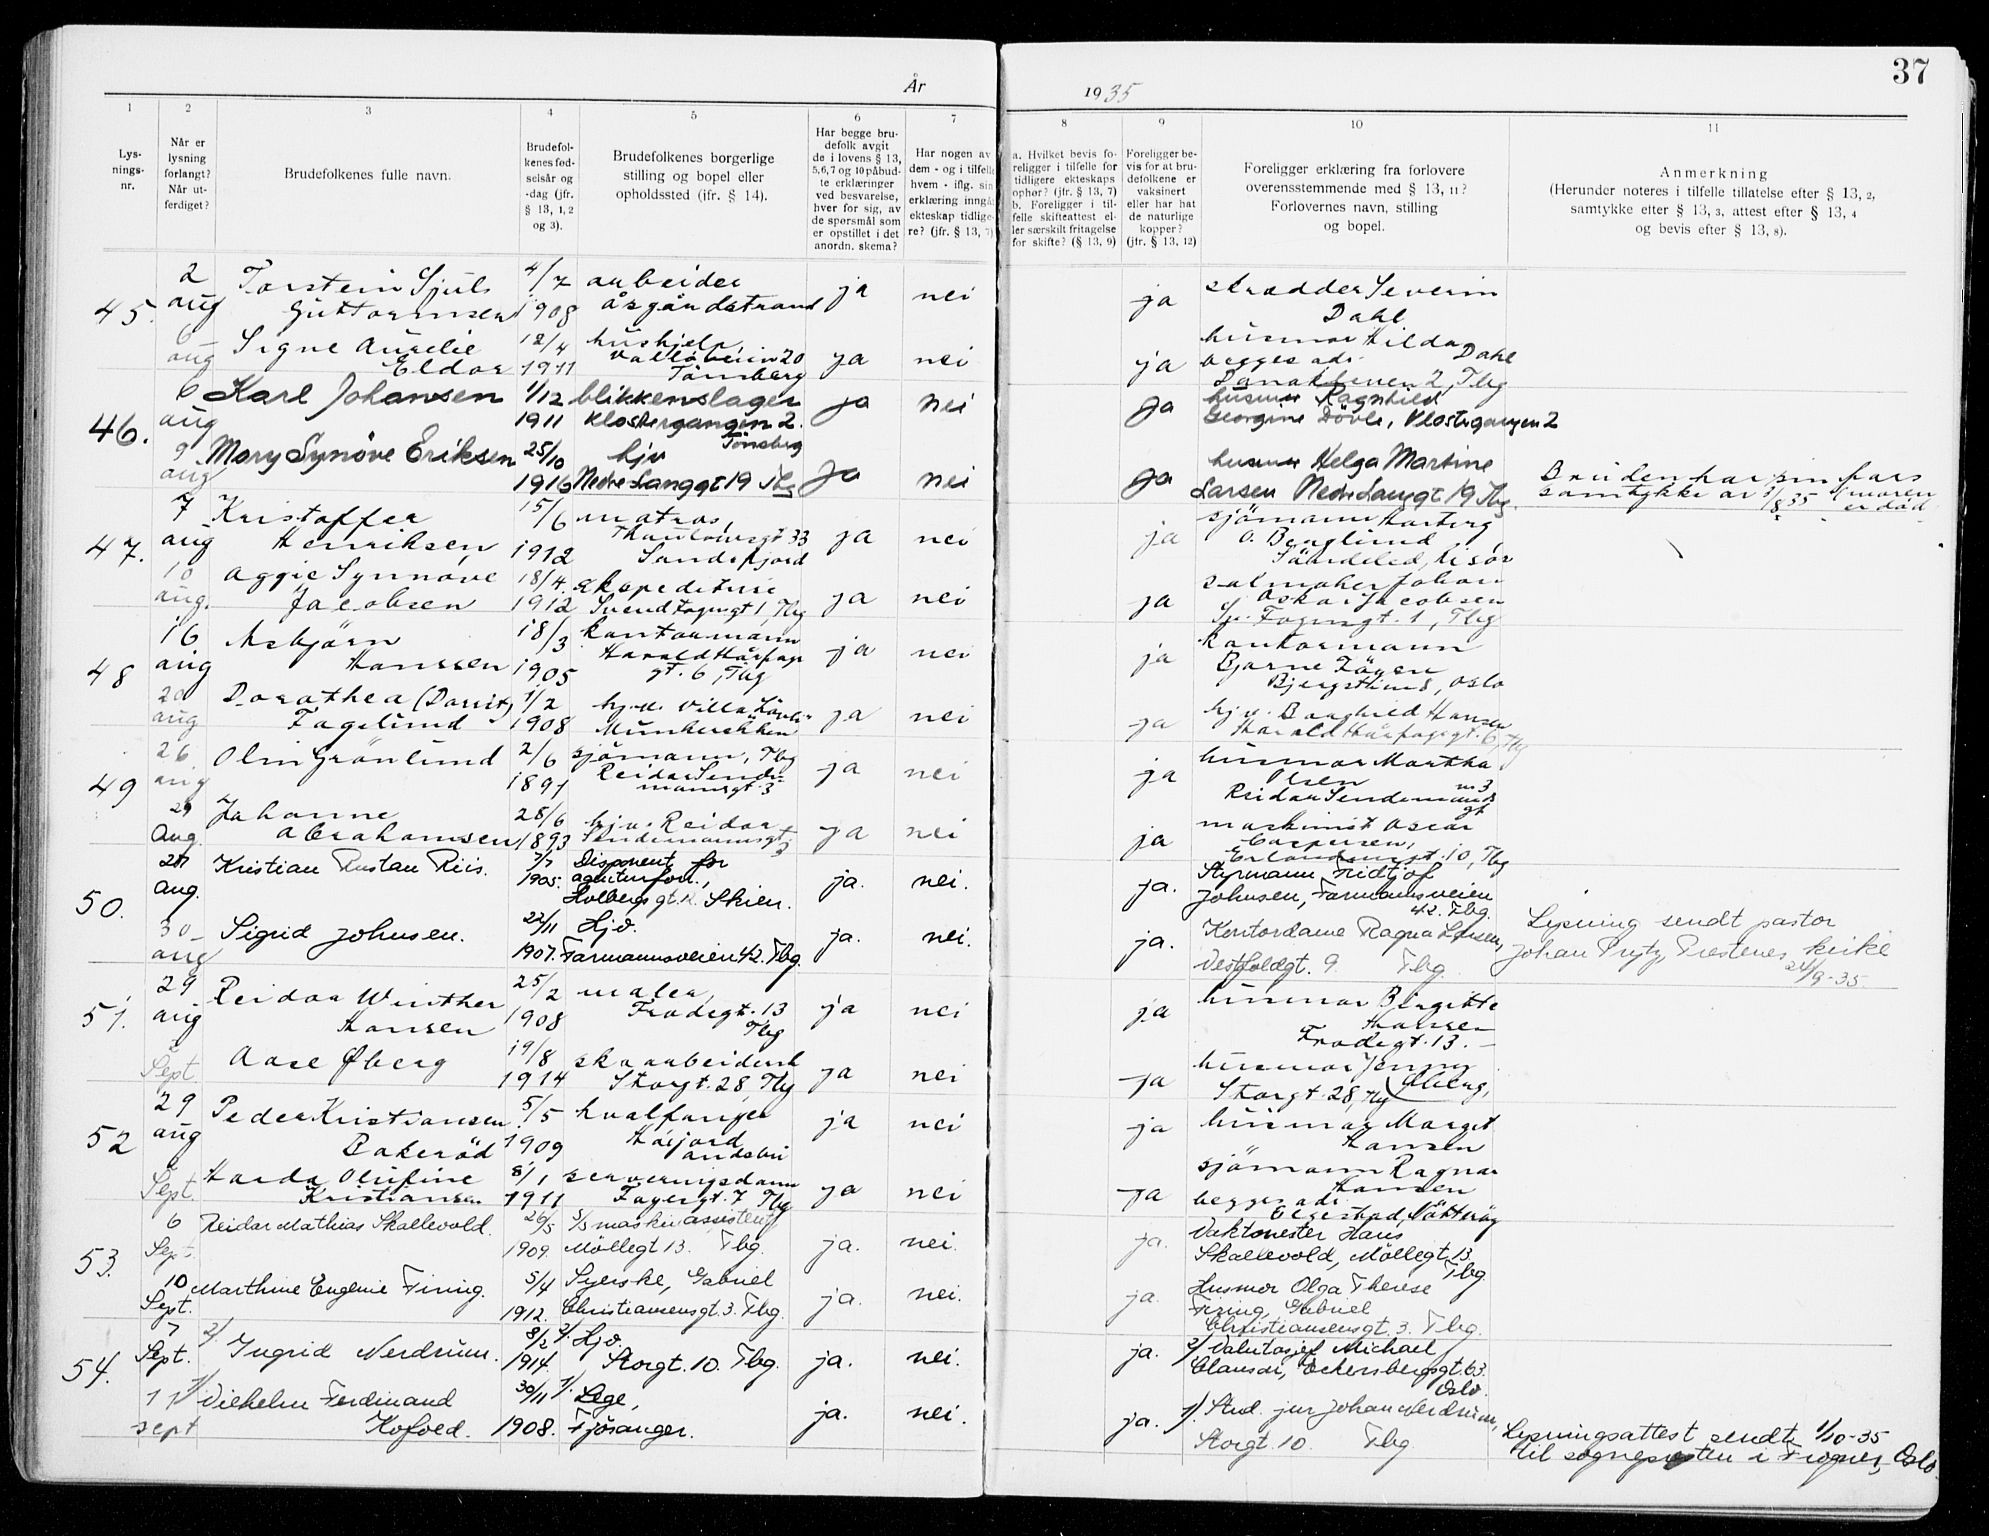 År 1935
37
1 2 3 4 5 6 7 8 9 10 11
Lys-
nings-
nr.
Når er
lysning
forlangt?
Når ut-
ferdiget?
Brudefolkenes fulle navn.
Brudefol-
kenes fød-
selsår og
-dag (jfr.
§ 13, 1, 2
og 3).
Brudefolkenes borgerlige
stilling og bopel eller
opholdssted (ifr. § 14).
Har begge bru-
defolk avgit
de i lovens § 13,
5,6,7 og 10 påbud-
te erklæringer
ved besvarelse,
hver for sig, av
de spørsmål som
er opstillet i det
anordn. skema?
Har nogen av
dem - og i tilfelle
hvem - iflg. sin
erklæring inngå
ekteskap tidlige-
re? (jfr. § 13, 7)
a. Hvilket bevis fo-
religger i tilfelle for
tidligere ekteskaps
ophør? (jfr. § 13, 7)
b. Foreligger i til-
felle skifteattest el-
ler særskilt fritagelse
for skifte? (§ 13, 9)
Foreligger be-
vis for at bru-
defolkene er
vaksinert
eller har hat
de naturlige
kopper?
(jfr. § 13, 12)
Foreligger erklæring fra forlovere
overensstemmende med § 13, 11?
Forlovernes navn, stilling
og bopel.
Anmerkning
(Herunder noteres i tilfelle tillatelse efter § 13, 2,
samtykke efter § 13, 3, attest efter § 13, 4
og bevis efter § 13, 8).
45.
2
aug
Torstein Sjuls
Guttormsen
4/7
1908
arbeider
Åsgårdstrand
ja
nei
ja
skrædder Severin
Dahl
6
aug
Signe Aurelie
Eldor
12/4
1911
hushjelp,
Vallöveien 20
Tönsberg
ja
nei
ja
husmor Hilda
Dahl
begges adr.
2, Tbg
46.
6
aug
Karl Johansen
1/12
1911
blikkenslager
Klostergangen 2.
Tönsberg
ja
nei
ja
husmor Ragnhild
Georgine Dövle, Klostergangen 2
9
aug
Mary Synöve Eriksen
25/10
1916
hjv
Nedre Langgt 19 Tbg
ja
nei
ja
husmor Helga Martine
Larsen Nedre Langgt 19 Tbg.
Bruden har sin fars
samtykke av 3/8 35 (moren
er död
47.
7
aug
Kristoffer
Henriksen
15/6
1912
matros,
Thaulowsgt 33
Sandefjord
ja
nei
ja
sjömann
o. Berglund
Söndeled, Risör
10
aug.
Aggie Synnöve
Jacobsen
18/4.
1912
ekspeditrise
Svend Foynsgt 1, Tbg
ja
nei
ja
salmaker Johan
Oskar Jacobsen
Sv. Foynsgt. 1, Tbg
48
16
aug
Asbjörn
Hanssen
18/3
1905
kontormann
Harald Hårfagr
gt. 6, Tbg
ja
nei
ja
Kontormann
Bjarne Höyen
8, Oslo
20
aug
Dorothea (Dorrit)
Fagelund
1/2
1908
hj.v. Villa
Munkerekken
ja
nei
ja
hj.v. Borghild Hansen
Harald Hårfagrsgt. 6, Tbg
49
26.
aug
Olin Grönlund
2/6
1891
sjömann, Tbg
Reidar Sende-
mannsgt. 3
ja
nei
ja
husmor Martha
Olsen
Reidar Sendemanns
gt nr 3
29
Aug.
Johanne
Abrahamsen
28/6
1893
hj.v. Reidar
Sendemannsgt
3
ja
nei
ja
maskinist Oscar
Caspersen,
10, Tbg
50.
27
Aug.
Kristian Rustan Riis.
7/7
1905.
Disponent for
agenturforr.,
Holbergsgt. Skien.
ja.
nei.
ja.
Styrmann Fridtjof
Johnsen, Farmannsveien
42. Tbg.
30
aug
Sigrid Johnsen.
22/11
1907.
Hjv.
Farmannsveien 42. Tbg.
ja.
nei.
ja.
Kontordame Ragna Larsen,
Vestfoldgt. 9. Tbg.
Lysning sendt pastor
Johan Prytz, Prestenes kirke
24/9-35.
51.
29
aug
Reidar Winther
Hansen
25/2
1908
maler,
Frodesgt. 13
Tbg
ja
nei
ja
husmor Birgitte
Hansen
Frodegt. 13.
Sept.
Aase Øberg
19/8
1914
skoarbeidersk
Storgt. 28, Tbg
ja
nei
ja
husmor Jenny
Øberg,
Storgt. 28, Tbg
52
29
aug
Peder Kristiansen
Bakeröd
5/5
1909
hvalfanger
ja
nei
ja
husmor Margit
Hansen
Sept
Harda Olufine
Kristiansen
8/1
1911
serveringsdame
Fayesgt. 7 Tbg
ja
nei
ja
sjömann Ragnar
Hansen
begges adr.
Nötteröy
53.
6
Sept.
Reidar Mathias Skallevold.
26/5
1909.
maskinassistent
Möllegt 13. Tbg.
ja.
nei.
ja.
Vaktmester Hans
Skallevold, Möllegt. 13
Tbg
10
Sept.
Marthine Eugenie Firing.
5/4
1912.
Syerske, Gabriel
Christiansensgt. 3. Tbg.
ja.
nei.
ja.
Husmor Olga Therese
Firing, Gabriel
Christiansensgt. 3. Tbg.
54.
7
Sept.
2/.
Ingrid Nerdrum.
8/2
1914.
2/. Hjv.
Storgt. 10. Tbg.
ja.
nei.
ja.
2/ Valutasjef Michael
Clausen, Eckersbergsgt. 63.
Oslo.
11
sept
1/ Vilhelm Ferdinand
Kofoed.
30/11
1908.
1/. Lege,
Fjösanger.
ja.
nei.
ja.
1/. Stud. jur Johan Nerdrum,
Storgt. 10. Tbg.
Lysningsattest sendt 1/10-35
til sognepresten i Frogner, Oslo.